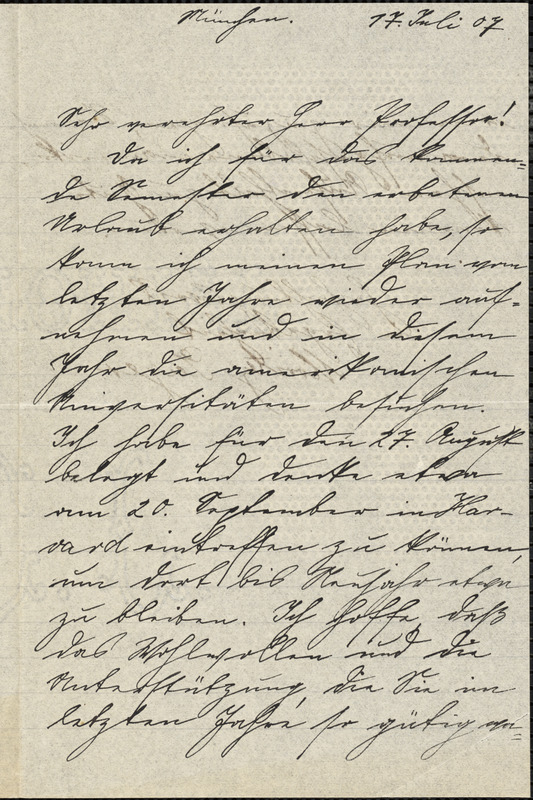 München. 17. Juli 07
Sehr verehrter Herr Professor!
Da ich für das kommen=
de Semester den erbetenen
Urlaub erhalten habe, so
kann ich meinen Plan vom
letzten Jahre wieder auf=
nehmen und in diesem
Jahr die amerikanischen
Universitäten besuchen.
Ich habe für den 27. August
belegt und denke etwa
am 20. September in Har-
vard eintreffen zu können,
um dort bis Neujahr etwa
zu bleiben. Ich hoffe, daß
das Wohlwollen und die
Unterstützung, die Sie im
letzten Jahre so gütig